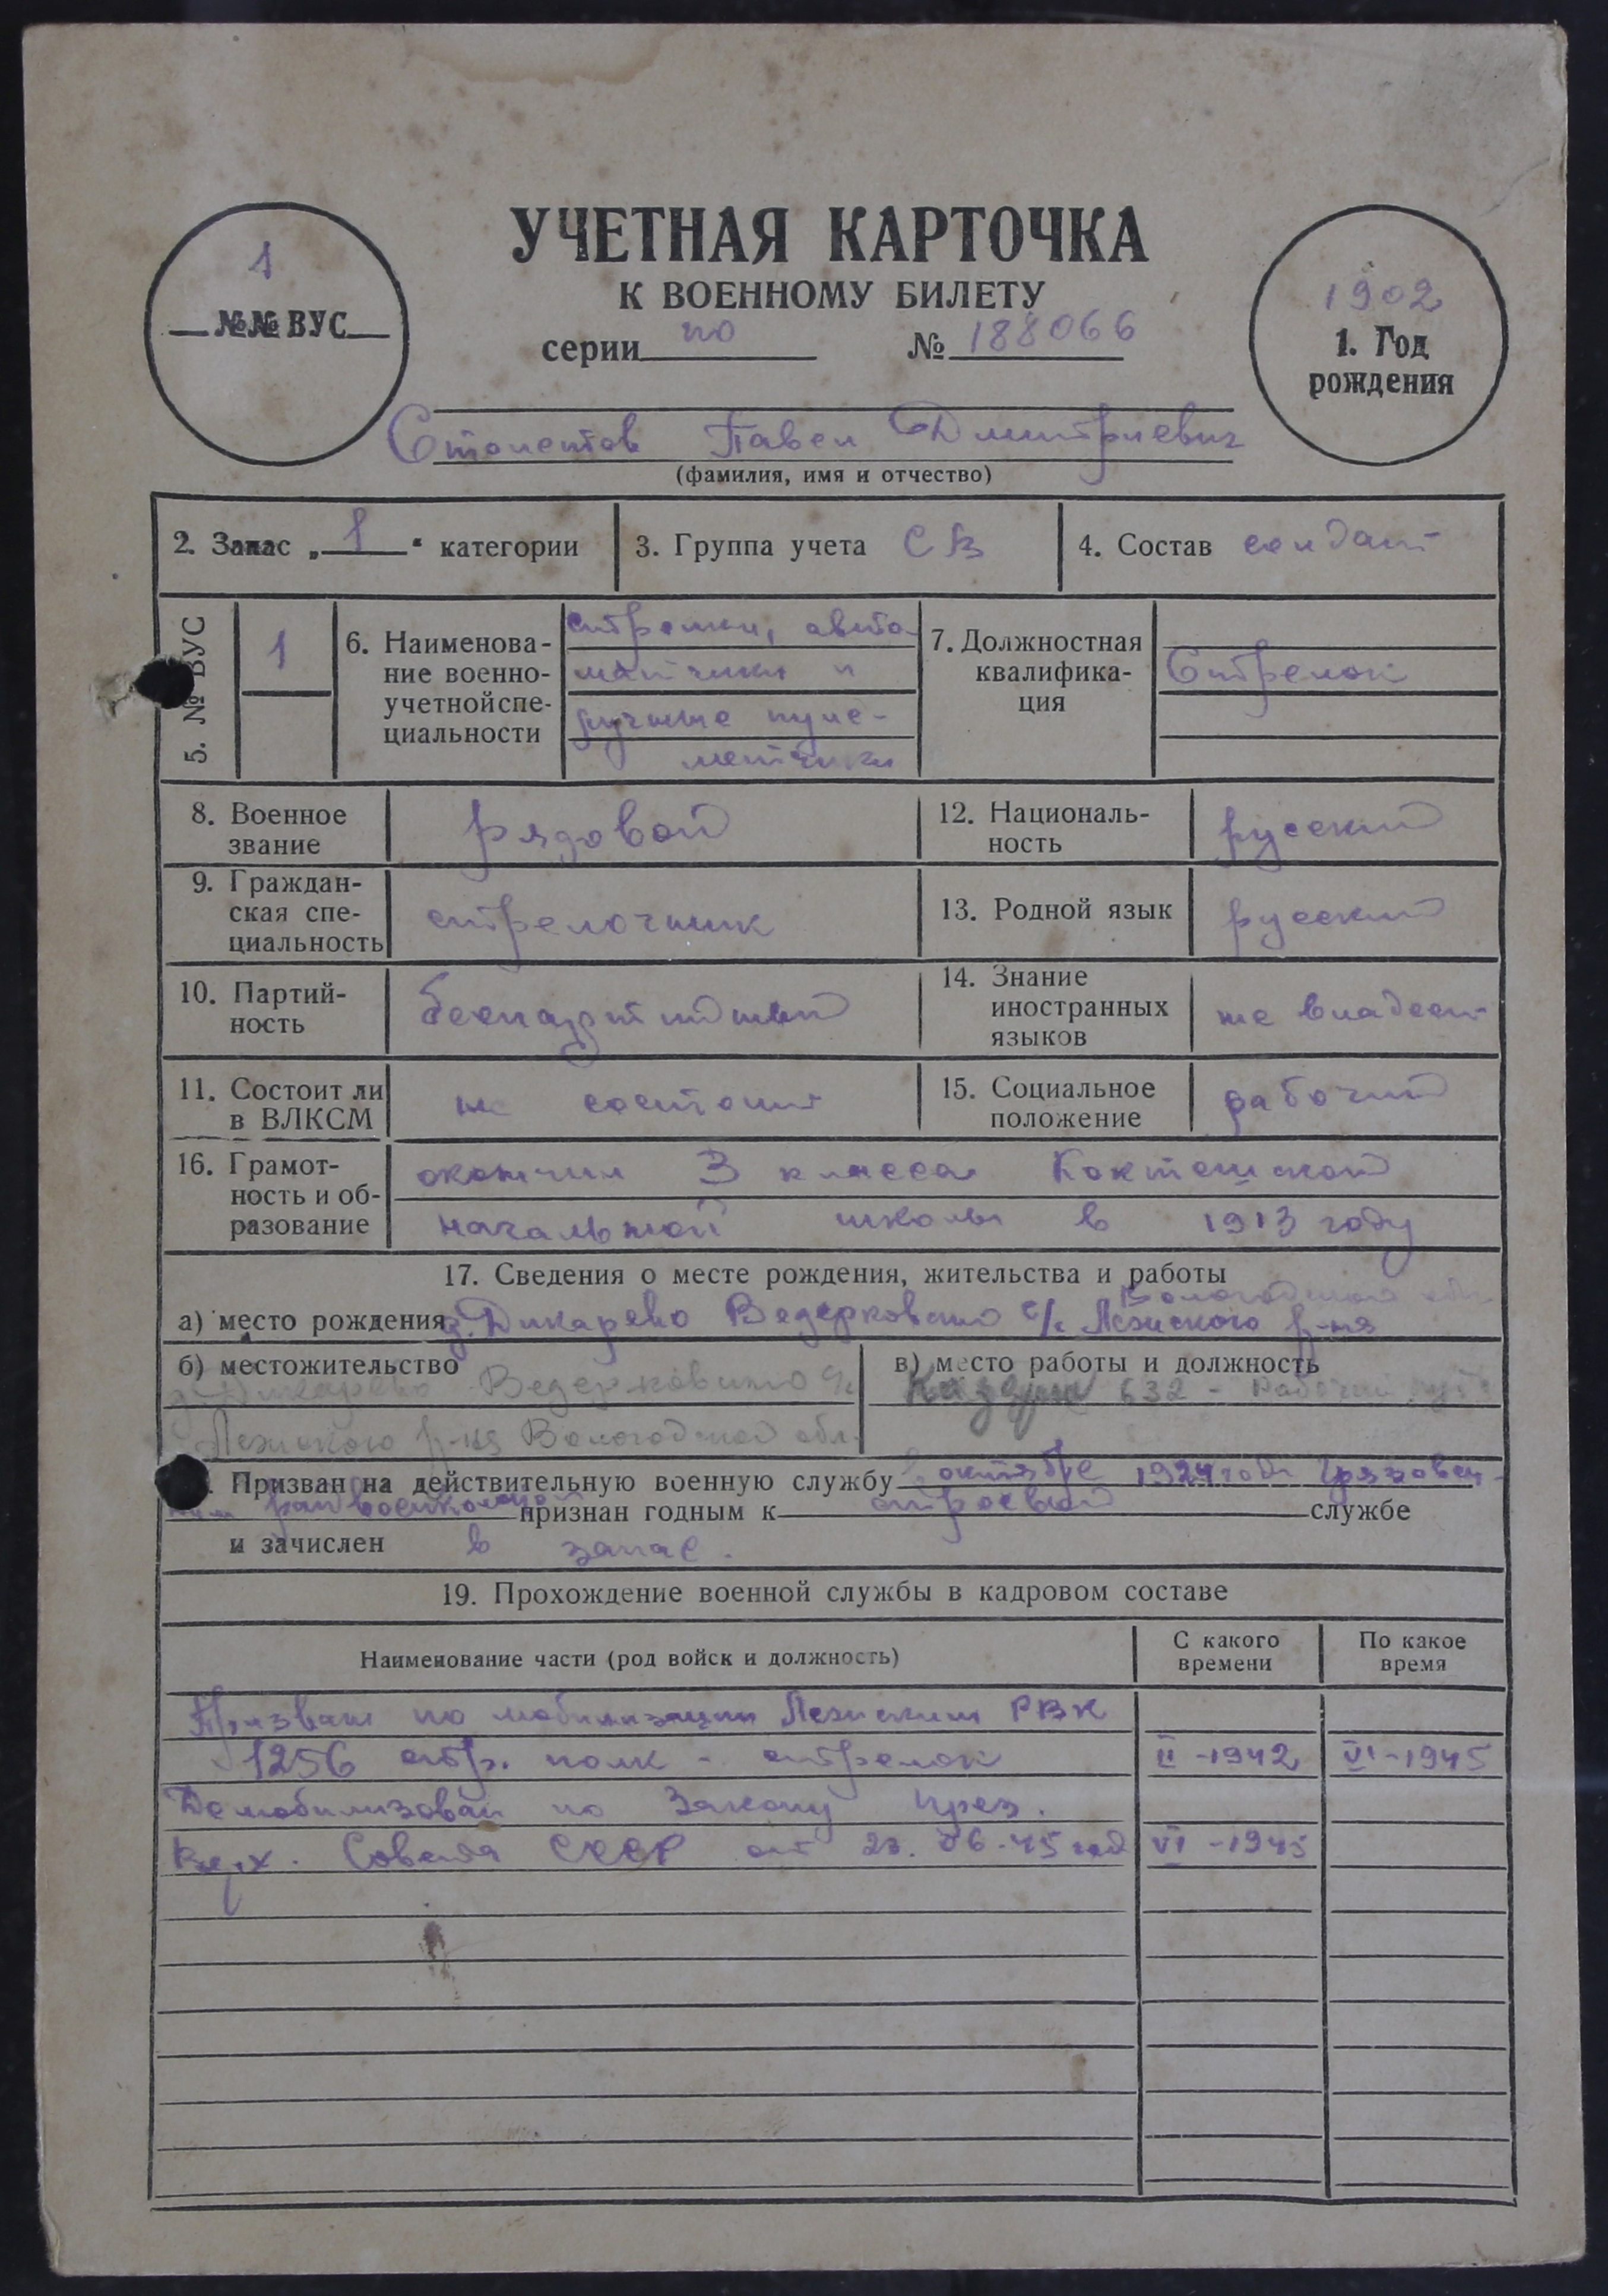 УЧЕТНАЯ КАРТОЧКА
К ВОЕННОМУ БИЛЕТУ
серии по № 188066
1
№№ ВУС
1902
1. Год
рождения
Столетов Павел Дмитриевич
(фамилия, имя и отчество)
2. Запас „1“ категории
3. Группа учета СВ
4. Состав солдат
5. № ВУС
1
6. Наименова-
ние военно-
учетной спе-
циальности
стрелки, авто-
матчики и
ручные пуле-
метчики
7. Должностная
квалифика-
ция
Стрелок
8. Военное
звание
рядовой
12. Националь-
ность
русский
9. Граждан-
ская спе-
циальность
стрелочник
13. Родной язык
русский
10. Партий-
ность
беспартийный
14. Знание
иностранных
языков
не владеет
11. Состоит ли
в ВЛКСМ
не состоит
15. Социальное
положение
рабочий
16. Грамот-
ность и об-
разование
окончил 3 класса
начальной школы в 1913 году
17. Сведения о месте рождения, жительства и работы
Вологодской обл.
а) место рождения д. Дикарево Ведерковского с/с Лежского р-на
б) местожительство
д. Дикарево Ведерковского с/с
Лежского р-на Вологодской обл.
в) место работы и должность
632 - Рабочий
Призван на действительную военную службу в октябре 1924 года Грязовец-
ким райвоенкоматом признан годным к строевой службе
и зачислен в запас.
19. Прохождение военной службы в кадровом составе
Наименование части (род войск и должность)
С какого
времени
По какое
время
Призван по мобилизации Лежским РВК
1256 стр. полк - стрелок II-1942 VI-1945
Демобилизован по Закону През.
Верх. Совета СССР от 23.06.45 год VI-1945